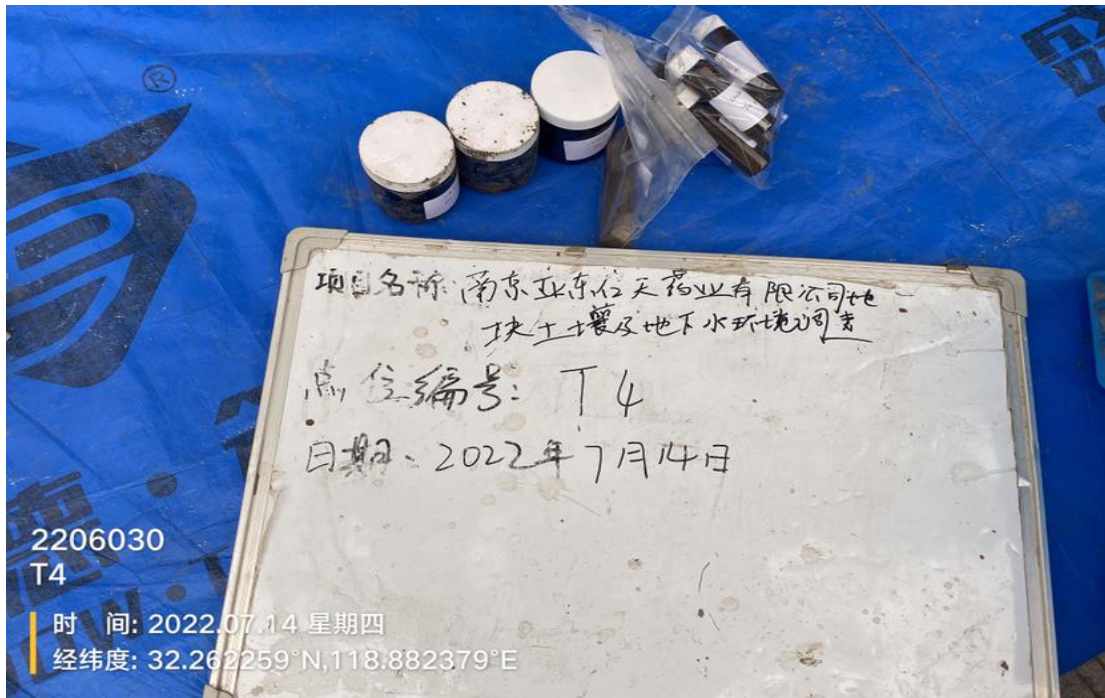 ®
项目名称:南京亚东仁天药业有限公司地
块土壤及地下水环境调查
点位编号: T4
日期:2022年7月14日
2206030
T4
时 间: 2022.07.14 星期四
经纬度: 32.262259°N,118.882379°E